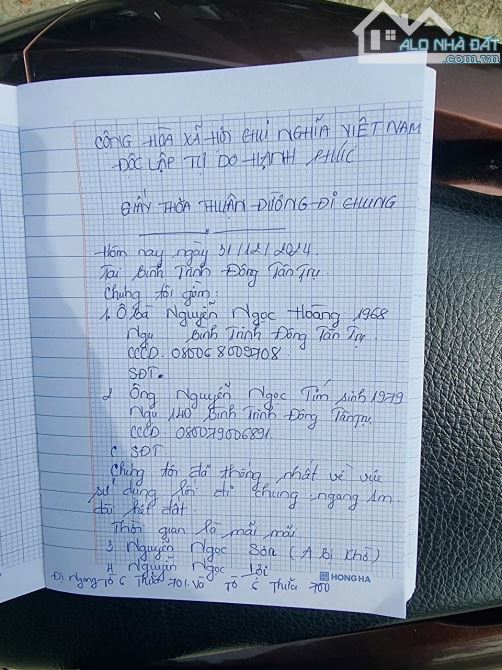 ALO NHÀ ĐẤT
.com.vn
CÔNG HÒA XÃ HỘI CHỦ NGHĨA VIỆT NAM
ĐỘC LẬP TỰ DO HẠNH PHÚC
GIẤY THỎA THUẬN ĐƯỜNG ĐI CHUNG
Hôm nay ngày 31/12/2024.
Tại Bình Trinh Đông Tân Trụ.
Chúng tôi gồm:
1. Ô bà Nguyễn Ngọc Hoàng 1968
Ngụ Bình Trinh Đông Tân Trụ.
CCCD. 080068009708
SĐT.
2 Ông Nguyễn Ngọc Tím sinh 1979
Ngụ 140 Bình Trinh Đông Tân Trụ
CCCD. 080079006891.
SĐT.
Chúng tôi đã thống nhất về việc
sử dụng lối đi chung ngang 1m.
dài hết đất.
Thời gian là mãi mãi
3 Nguyễn Ngọc Sơn (A Bi Khô)
4 Nguyễn Ngọc Lợi
HONG HA
Đi ngang Tờ 6 Thửa 701. Và Tờ 6 Thửa 700